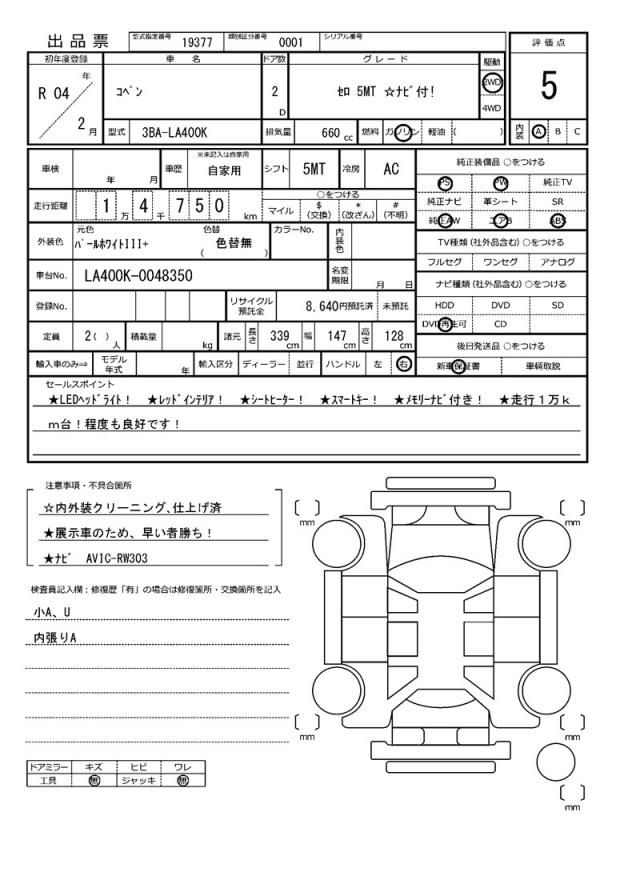 出品票 型式指定番号 19377 類別区分番号 0001 シリアル番号
評価点
5
内装 A B C
初年度登録 車名 ドア数 グレード 駆動
R 04 年 2 月 コペン 2 D セロ 5MT ☆ナビ付! 2WD 4WD
型式 3BA-LA400K 排気量 660 cc 燃料 ガソリン 軽油 ( )
車検 年 月 車歴 ※未記入は自家用 自家用 シフト 5MT 冷房 AC
走行距離 1 万 4 千 7 5 0 km ○をつける マイル $ (交換) * (改ざん) # (不明)
外装色 元色 パールホワイトIII+ 色替 ( 色替無 ) カラーNo. 内装色
車台No. LA400K-0048350 名変期限 月 日
登録No. リサイクル預託金 8,640円預託済 未預託
定員 2 ( ) 人 積載量 kg 諸元 長さ 339 cm 幅 147 cm 高さ 128 cm
輸入車のみ⇒ モデル年式 年 輸入区分 ディーラー 並行 ハンドル 左 右
純正装備品 ○をつける
PS PW 純正TV
純正ナビ 革シート SR
純正AW エアB ABS
TV種類 (社外品含む) ○をつける
フルセグ ワンセグ アナログ
ナビ種類 (社外品含む) ○をつける
HDD DVD SD
DVD再生可 CD
後日発送品 ○をつける
新車保証書 車輌取説
セールスポイント
★LEDヘッドライト! ★レッドインテリア! ★シートヒーター! ★スマートキー! ★メモリーナビ付き! ★走行1万k
m台!程度も良好です!
注意事項・不具合箇所
☆内外装クリーニング、仕上げ済
★展示車のため、早い者勝ち!
★ナビ AVIC-RW303
検査員記入欄:修復歴「有」の場合は修復箇所・交換箇所を記入
小A、U
内張りA
ドアミラー キズ ヒビ ワレ
工具 無 ジャッキ 無
[ ] mm
[ ] mm
[ ] mm
[ ] mm
[ ] mm